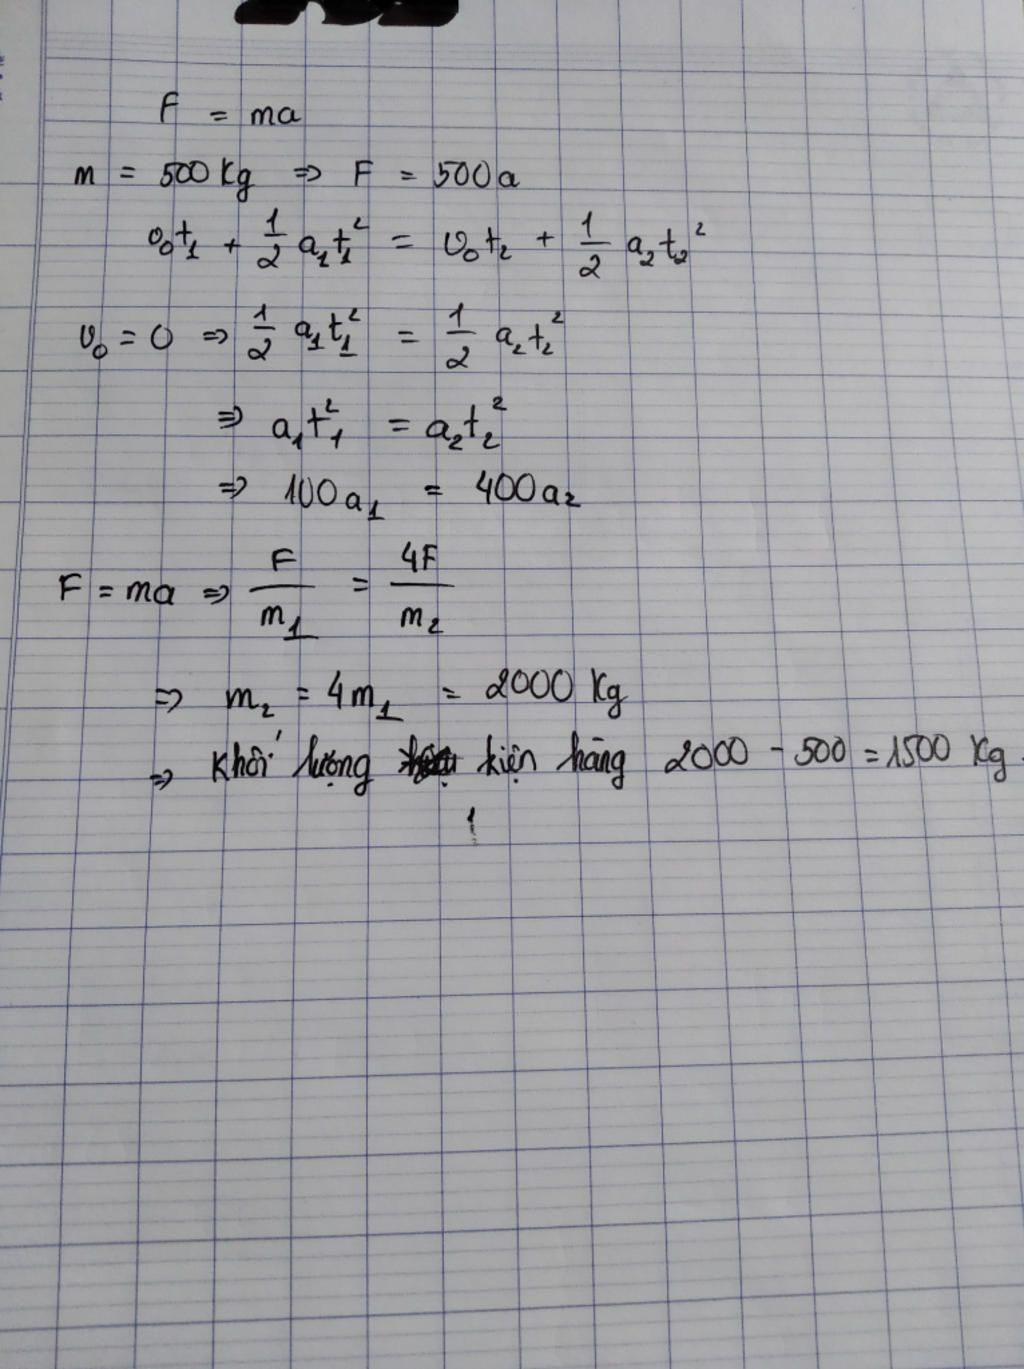 F = ma
m = 500 Kg ⇒ F = 500a
v₀t₁ + 1/2 a₁t₁² = v₀t₂ + 1/2 a₂t₂²
v₀ = 0 ⇒ 1/2 a₁t₁² = 1/2 a₂t₂²
⇒ a₁t₁² = a₂t₂²
⇒ 100a₁ = 400a₂
F = ma ⇒ F/m₁ = 4F/m₂
⇒ m₂ = 4m₁ = 2000 Kg
⇒ Khối lượng kiện hàng 2000 - 500 = 1500 Kg.